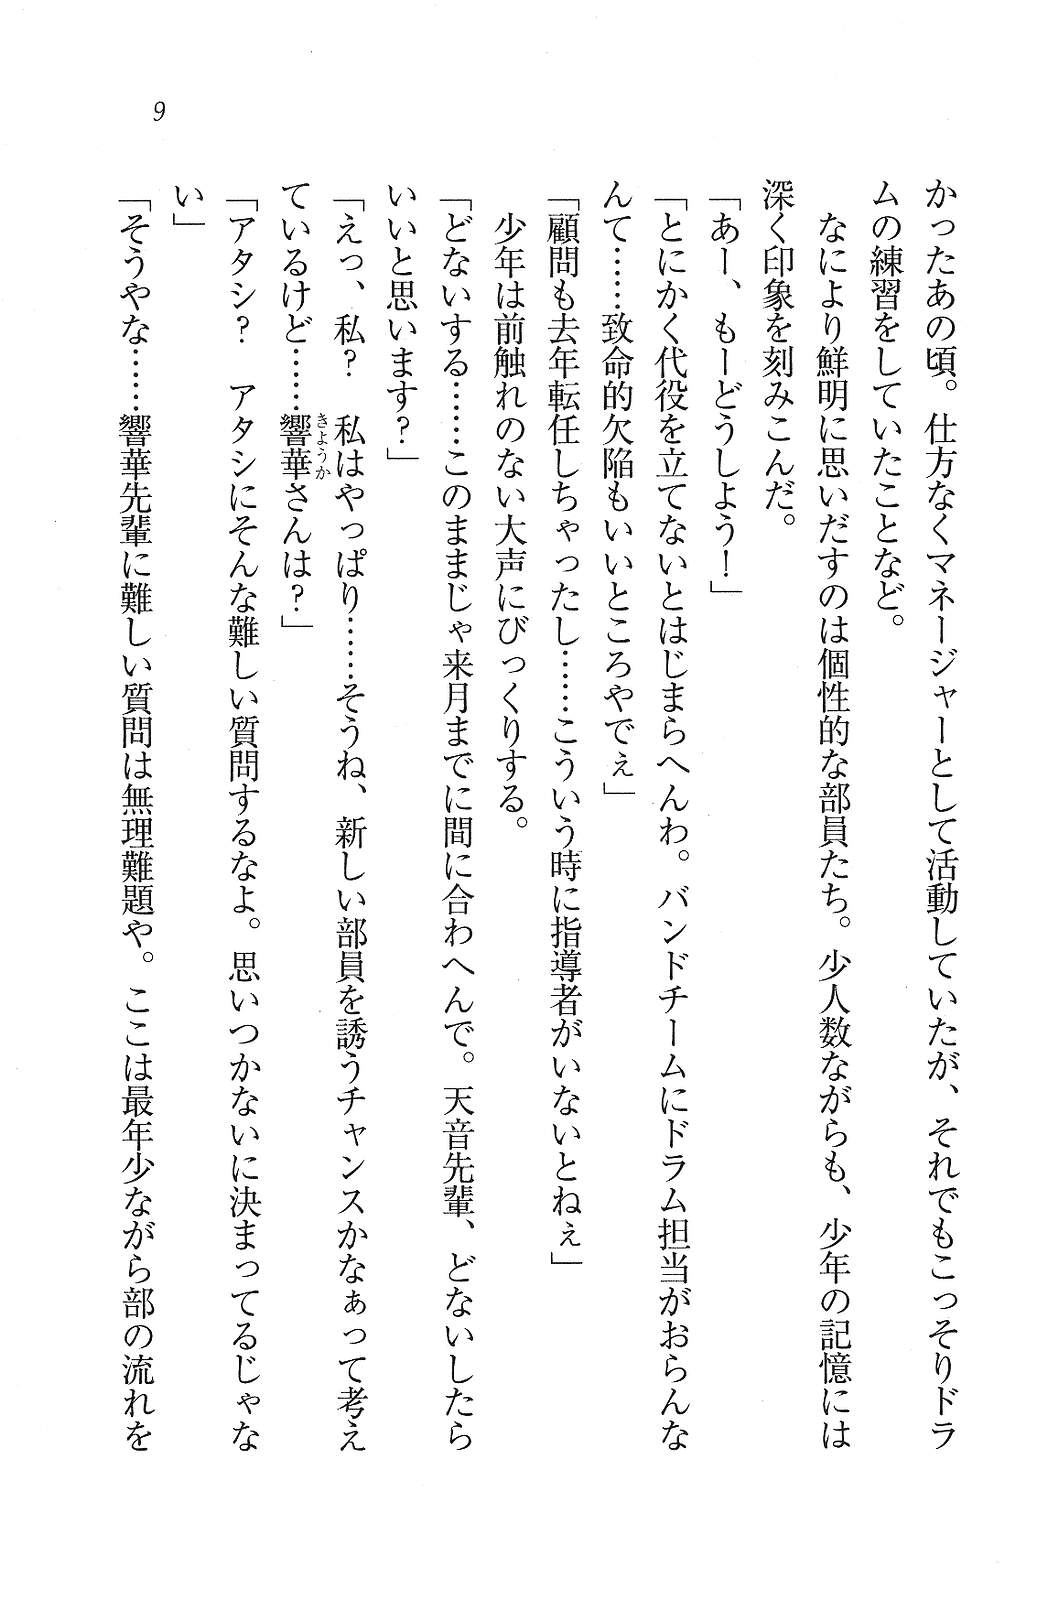 9
かったあの頃。仕方なくマネージャーとして活動していたが、それでもこっそりドラ
ムの練習をしていたことなど。
　なにより鮮明に思いだすのは個性的な部員たち。少人数ながらも、少年の記憶には
深く印象を刻みこんだ。
「あー、もーどうしよう！」
「とにかく代役を立てないとはじまらへんわ。バンドチームにドラム担当がおらんな
んて……致命的欠陥もいいところやでぇ」
「顧問も去年転任しちゃったし……こういう時に指導者がいないとねぇ」
　少年は前触れのない大声にびっくりする。
「どないする……このままじゃ来月までに間に合わへんで。天音先輩、どないしたら
いいと思います？」
「えっ、私？　私はやっぱり……そうね、新しい部員を誘うチャンスかなぁって考え
ているけど……響華さんは？」
きようか
「アタシ？　アタシにそんな難しい質問するなよ。思いつかないに決まってるじゃな
い」
「そうやな……響華先輩に難しい質問は無理難題や。ここは最年少ながら部の流れを